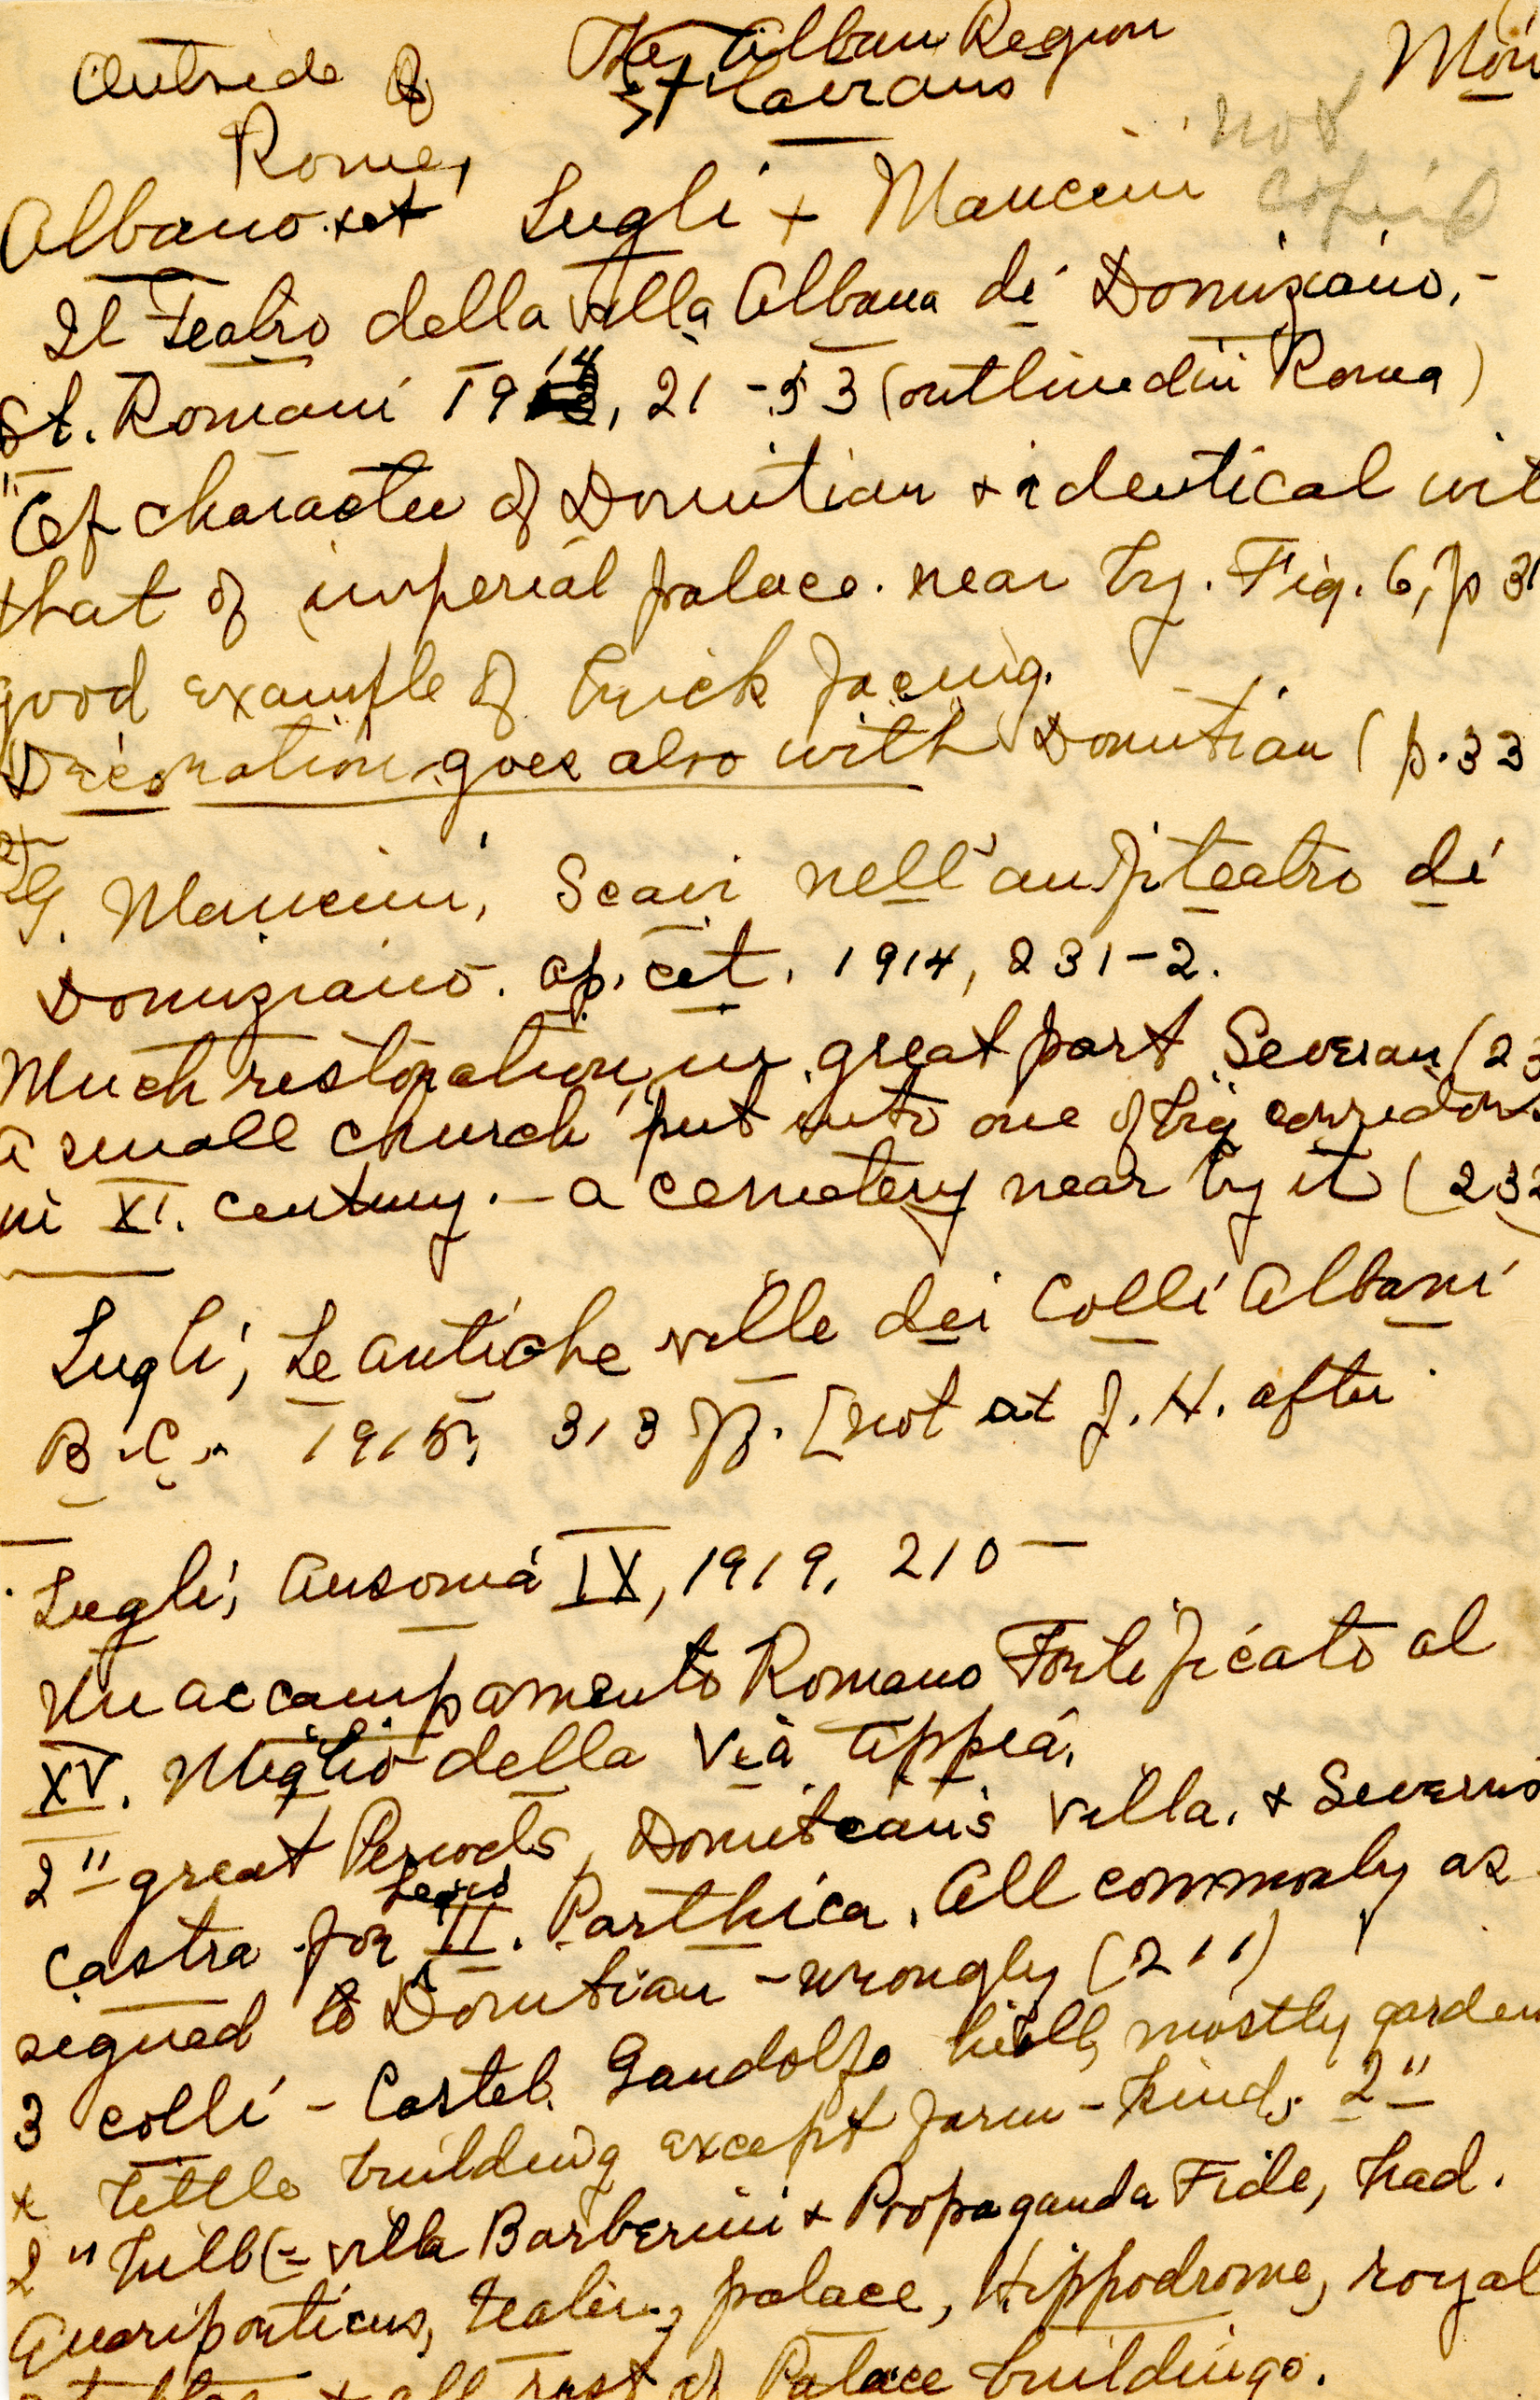 Outside of
Rome,
The Alban Region
Mon
not
copied
Albano. Lugli + Mancini
Il Teatro della Villa Albana di Domiziano,-
St. Romani 1914, 21-53 (outlined in Roma)
"Of character of Domitian & identical wit
that of imperial palace. near by. Fig. 6, p 31
good example of brick facing.
Decoration goes also with Domitian (p. 33
G. Mancini, Scavi nell'anfiteatro di
Domiziano. op. cit. 1914, 231-2.
Much restoration, in great part Severan (23
a small church put into one of big corridors
in XI. century. - a cemetery near by it (232
Lugli, Le antiche ville dei Colli Albani
B.C. 1915, 313 ff. [not at J. H. after
Lugli, Ausonia IX, 1919, 210-
Un accampamento Romano Fortificato al
XV. Miglio della Via Appia,
2" great Periods, Domitian's Villa, & Severus
Castra for Legio II. Parthica. All commonly as
signed to Domitian - wrongly (211)
3 colli - Castel Gandolfo hill, mostly garden
& little building except farm-kind. 2"
2" hill (= villa Barberini & Propaganda Fide, had.
Quadriporticus, teatro, palace, Hippodrome, royal
& all rest of Palace buildings.